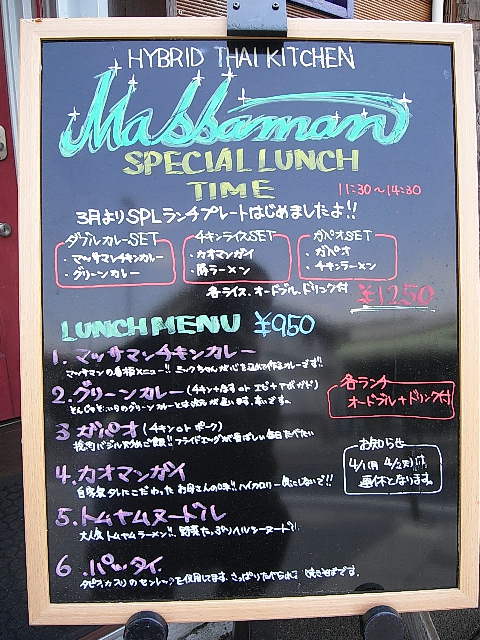 HYBRID THAI KITCHEN
Massaman
SPECIAL LUNCH
TIME
11:30～14:30
3月よりSPLランチプレートはじめましたよ!!
ダブルカレーSET
・マッサマンチキンカレー
・グリーンカレー
チキンライスSET
・カオマンガイ
・豚ラーメン
ガパオSET
・ガパオ
・チキンラーメン
各ライス、オードブル、ドリンク付 ¥1250
LUNCH MENU ¥950
1. マッサマンチキンカレー
マッサマンの看板メニュー!!
2. グリーンカレー (チキン+なす or エビ+アボガド)
3 ガパオ (チキン or ポーク)
挽肉バジル炒めご飯!! フライドエッグが香ばしい毎日たべたい
4. カオマンガイ
自家製タレにこだわったお母さんの味!! ハイカロリー気にしないで!!
5. トムヤムヌードル
大人気トムヤムラーメン!! 野菜たっぷりヘルシーヌードル
6. パッタイ
各ランチ
オードブル+ドリンク付
お知らせ
4/1(月) 4/2(火)は
昼休となります。